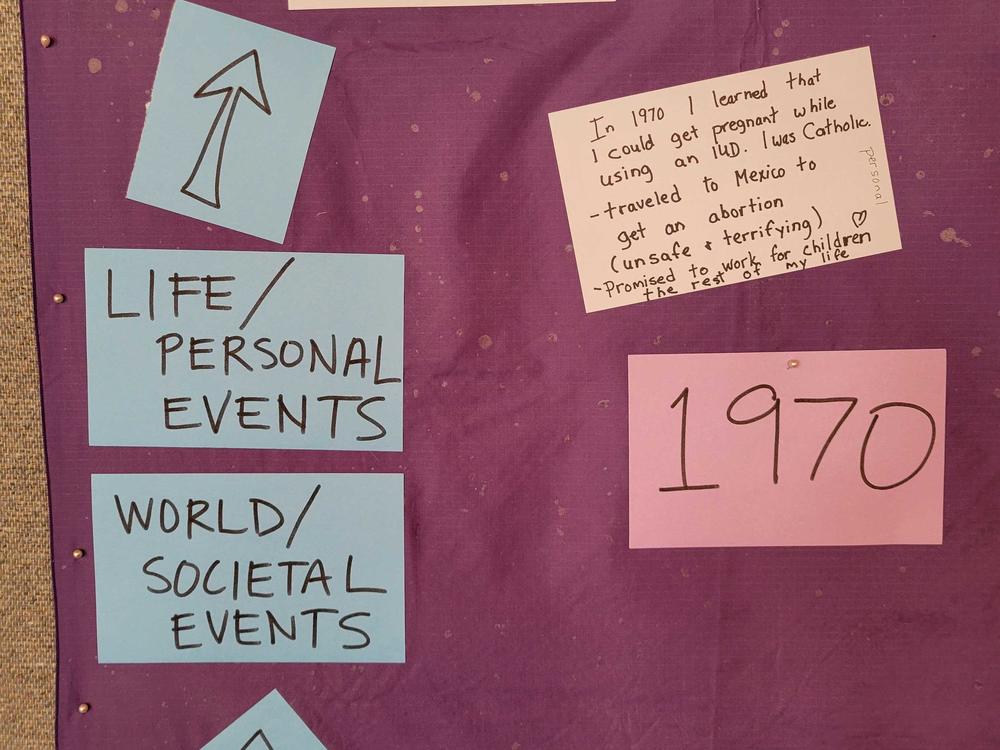 In 1970 I learned that
I could get pregnant while
using an IUD. I was Catholic.
- traveled to Mexico to
get an abortion
(unsafe & terrifying)
- Promised to work for children
the rest of my life
personal
LIFE/
PERSONAL
EVENTS
1970
WORLD/
SOCIETAL
EVENTS